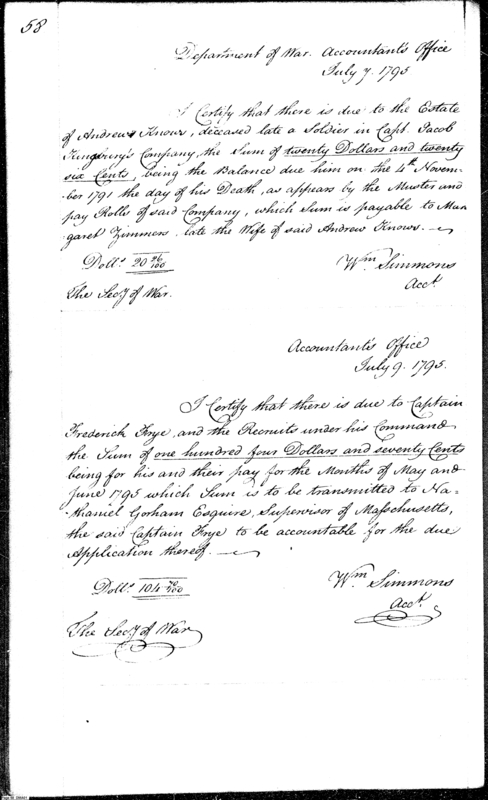 58
Department of War. Accountant's Office
July 7. 1795
I Certify that there is due to the Estate
of Andrew Knows, deceased late a Soldier in Capt. Jacob
Kingbury's Company, the Sum of twenty Dollars and twenty
six Cents, being the Balance due him on the 4th Novem-
ber 1791 the day of his Death, as appears by the Muster and
pay Rolls of said Company, which Sum is payable to Mar-
garet Zimmers late the Wife of said Andrew Knows.
Dolls. 20 26/100
Wm Simmons
Acct.
The Secy of War.
Accountant's Office
July 9. 1795.
I Certify that there is due to Captain
Frederick Frye, and the Recruits under his Command
the Sum of one hundred four Dollars and seventy Cents
being for his and their pay for the Months of May and
June 1795 which Sum is to be transmitted to Na-
thaniel Gorham Esquire, Supervisor of Masschusetts,
the said Captain Frye to be accountable for the due
Application thereof.
Dolls. 104 70/100
Wm Simmons
Acct.
The Secy of War